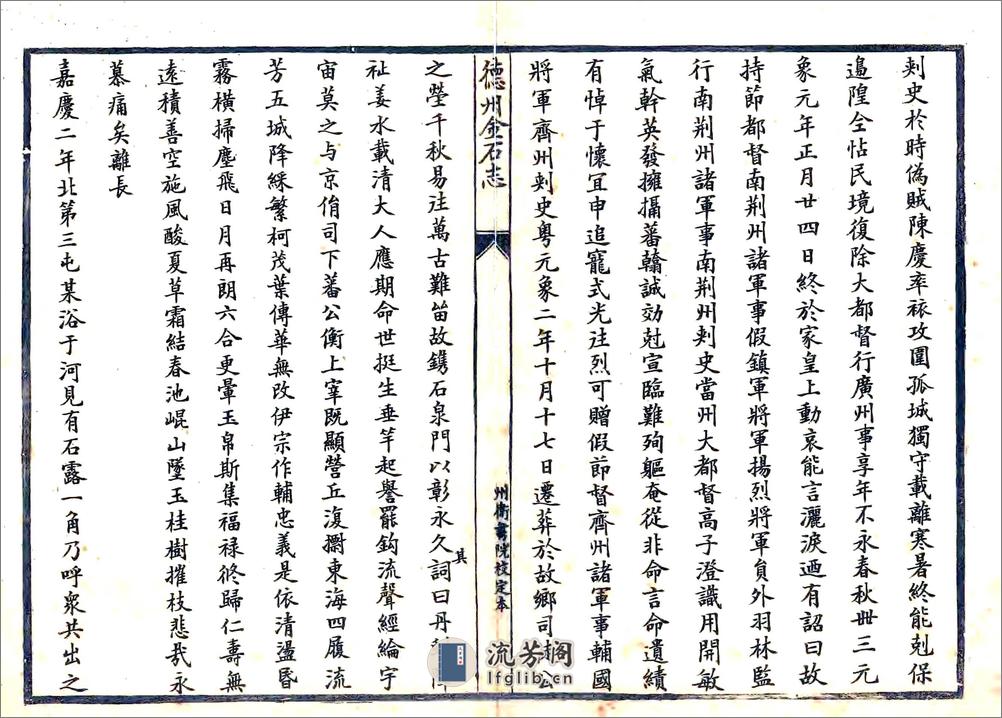 刾史於時偽賊陳慶率攻圍孤城獨守載離寒暑終能剋保
邊隍仝怗民境復除大都督行廣州事享年不永春秋卌三元
象元年正月廿四日終於家皇上動哀能言灑淚迺有詔曰故
持節都督南荆州諸軍事假鎮軍將軍揚烈將軍員外羽林監
行南荆州諸軍事南荆州刾史當州大都督高子澄識用開敏
氣幹英發擁攝蕃翰誠効尅宣臨難殉軀奄從非命言命遺績
有悼于懷冝申追寵式光注烈可贈假節督齊州諸軍事輔國
將軍齊州刾史粤元象二年十月十七日遷葬於故鄉司公
德州金石志
州衛書院校定本
之塋千秋易注萬古難畄故鐫石泉門以彰永久其詞曰丹
祉姜水載清大人應期命世挺生垂竿起譽罷鈎流聲經綸宇
宙莫之与京俏司下蕃公衡上宰既顯營丘復東海四履流
芳五城降綵繁柯茂葉傳華無改伊宗作輔忠義是依清盪昏
霧橫掃塵飛日月再朗六合更暈玉帛斯集福禄攸歸仁壽無
遠積善空施風酸夏草霜結春池崐山墜玉桂樹摧枝悲哉永
慕痛矣離長
嘉慶二年北第三屯某浴于河見有石露一角乃呼衆共出之
流芳閣
lfglib.cn